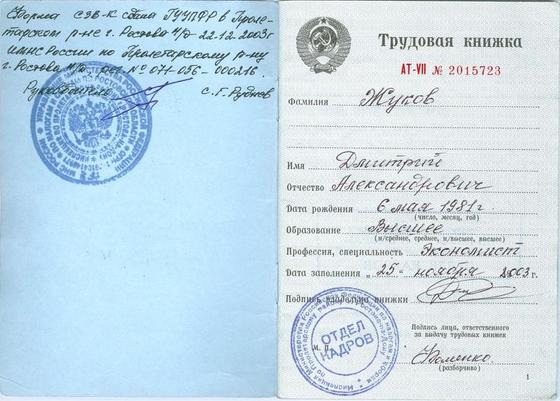 Форма СЗВ-К сдана ГУУПФР в Проле-
тарском р-не г. Ростова н/Д 22.12.2003г
ИМНС России по Пролетарскому р-ну
г. Ростова н/Д рег № 071-056-000216.
Руководитель С. Г. Руднов
Трудовая книжка
АТ-VII № 2015723
Фамилия Жуков
Имя Дмитрий
Отчество Александрович
Дата рождения 6 мая 1981г.
(число, месяц, год)
Образование Высшее
(н/среднее, среднее, н/высшее, высшее)
Профессия, специальность Экономист
Дата заполнения „25" ноября 2003г.
Подпись владельца книжки
ОТДЕЛ
КАДРОВ
М. П.
Подпись лица, ответственного
за выдачу трудовых книжек
Фоменко
(разборчиво)
1